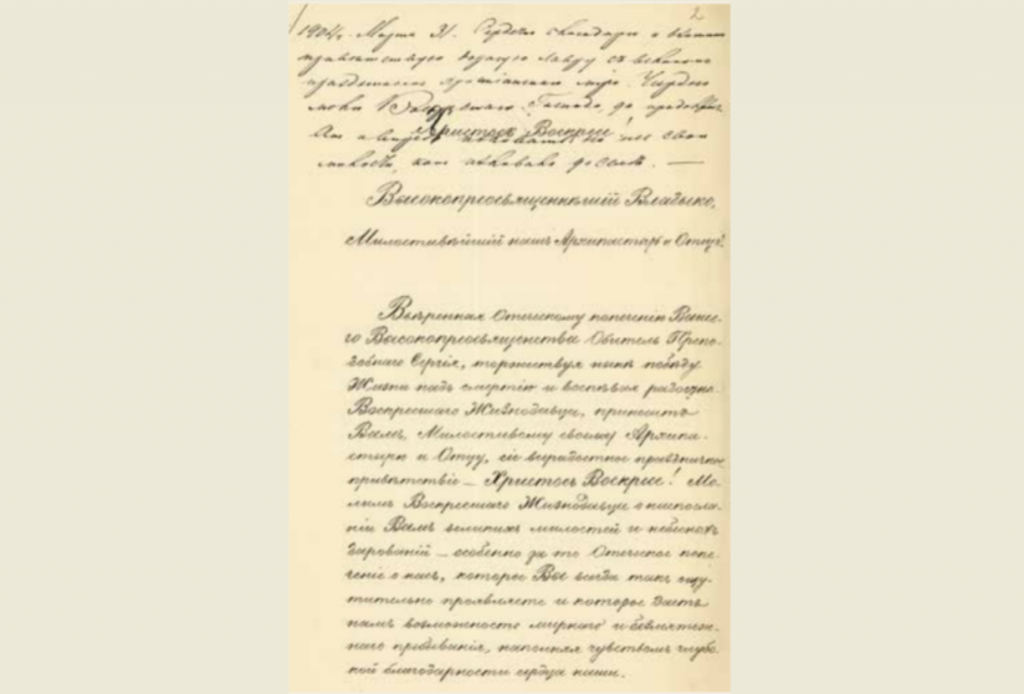 2
1904 г. Марта 31. Сердечно благодарю и
праздником христианского мира.
Воскресшаго Господа, да
Христосъ Воскресе!
милость, какъ доселѣ. —
Высокопреосвященнѣйшій Владыко,
Милостивѣйшій нашъ Архипастырь и Отецъ!
Ввѣренная Отеческому попеченію Ваше-
го Высокопреосвященства Обитель Препо-
добнаго Сергія, торжествуя нынѣ побѣду
Жизни надъ смертію и воспѣвая радостно
Воскресшаго Жизнодавца, приноситъ
Вамъ, Милостивому своему Архипа-
стырю и Отцу, сіе всерадостное праздничное
привѣтствіе — Христосъ Воскресе! Мо-
лимъ Воскресшаго Жизнодавца о ниспосла-
ніи Вамъ великихъ милостей и небесныхъ
дарованій — особенно за то Отеческое попе-
ченіе о насъ, которое Вы всегда такъ ощу-
тительно проявляете и которое даетъ
намъ возможность мирнаго и безмятеж-
наго пребыванія, наполняя чувствомъ глубо-
кой благодарности сердца наши.